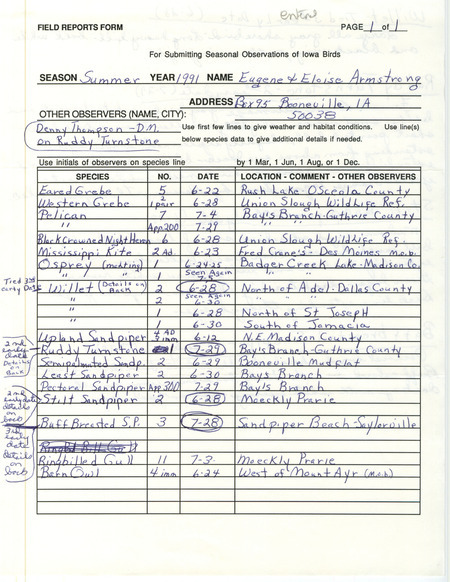 entered
FIELD REPORTS FORM PAGE 1 of 1
For Submitting Seasonal Observations of Iowa Birds
SEASON Summer YEAR 1991 NAME Eugene & Eloise Armstrong
ADDRESS Box 95 Booneville, IA
OTHER OBSERVERS (NAME, CITY): 50038
Denny Thompson - D.M. Use first few lines to give weather and habitat conditions. Use line(s)
on Ruddy Turnstone below species data to give additional details if needed.
Use initials of observers on species line by 1 Mar, 1 Jun, 1 Aug, or 1 Dec.
SPECIES NO. DATE LOCATION - COMMENT - OTHER OBSERVERS
Eared Grebe 5 6-22 Rush Lake - Osceola County
Western Grebe 2 1 pair 6-28 Union Slough Wildlife Ref.
Pelican 7 7-4 Bay's Branch-Guthrie County
" App. 200 7-29 " "
Black Crowned Night Heron 6 6-28 Union Slough Wildlife Ref.
Mississippi Kite 2 Ad. 6-23 Fred Crane's - Des Moines m.ob.
Osprey 1 6-24-25 Badger Creek Lake-Madison Co.
" 1 Seen Again " "
Tied 3rd early Date Willet (Details on Back) 2 6-28 North of Adel - Dallas County
" 2 Seen Again 6-30 " "
1 6-28 North of St Joseph
1 6-30 South of Jamacia
Upland Sandpiper 4 AD 6-12 N.E. Madison County
2nd early date Details on Back Ruddy Turnstone 1 7-29 Bay's Branch-Guthrie County
Semipalmated Sandp. 2 6-29 Booneville Mudflat
Least Sandpiper 2 6-30 Bays Branch
Pectoral Sandpiper App 300 7-29 Bay's Branch
2nd early date details on back Stilt Sandpiper 2 6-28 Moeckly Prarie
3rd early date Details on back Buff Breasted S.P. 3 7-28 Sandpiper Beach - Saylorville
Ringed Bill Gull
Ringbilled Gull 11 7-3 Moeckly Prarie
Barn Owl 4 imm 6-24 West of Mount Ayr (m.ob)